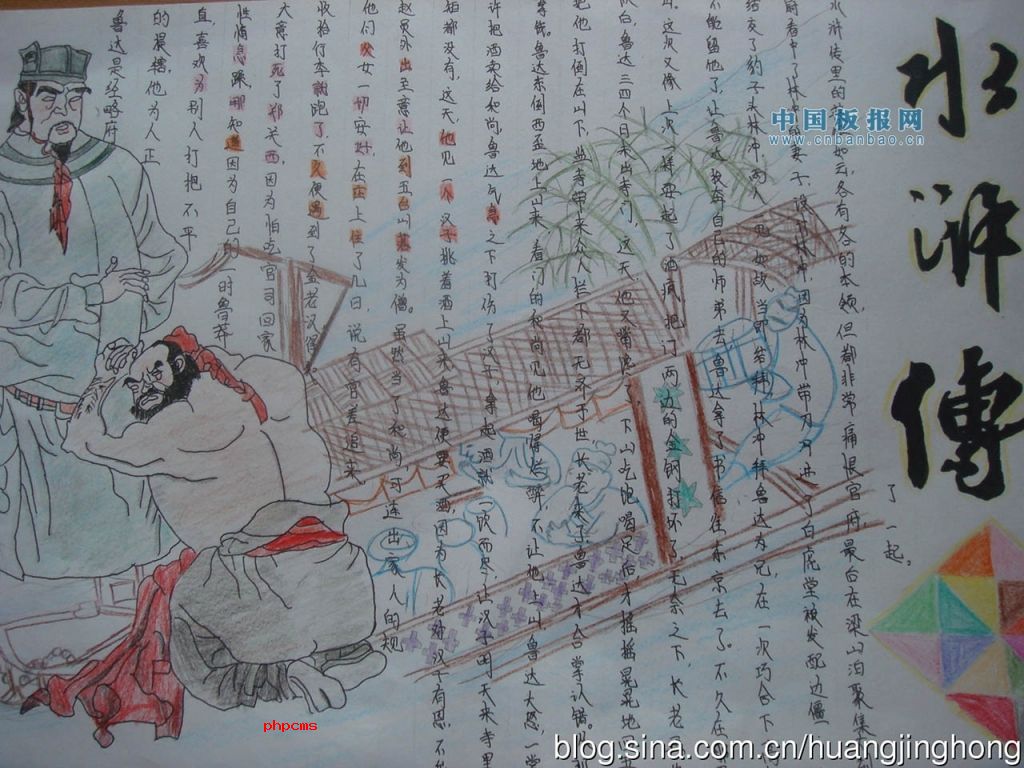 水滸傳
鲁达是经略府
的提辖,他为人正
直,喜欢为别人打抱不平
性情急躁哪知道因为自己的一时鲁莽
大意打死了郑关西,因为怕吃官司回家
收拾行李就跑了,不久便遇到了金老汉
他们父女一切安好,在庄上住了几日,说有官差追来
赵员外出主意让他到五台山落发为僧。虽然当了和尚可连出家人的规
矩都没有,这天,他见一个汉子挑着酒上山来鲁达便要买酒,因为长老好汉子有恩,不
许把酒卖给和尚,鲁达气急之下打伤了汉子,拿起酒就一饮而尽,让汉子明天来寺里
拿钱。鲁达东倒西歪地上山来,看门的和尚见他喝得烂醉,不让他上山鲁达大怒,一掌
把他打倒在山下,监寺带来众人拦下都无济于世,长老来了鲁达才合掌认错。
鲁达三四个日未出寺门,这天他又嘴馋了,下山吃饱喝足后,才摇摇晃晃地
山。这次又像上次一样耍起了酒疯把门两边的金钢打坏了无奈之下,长老
不能留他了,让鲁达投奔自己的师弟去鲁达拿了书信往东京去了。不久在
结交了豹子头林冲,两人一见如故,当即结拜,林冲拜鲁达为兄,在一次巧合下
府看中了林冲的妻子,设计林冲,因为林冲带刀进了白虎堂被发配边疆
水浒传里的英雄如云,各有各的本领,但都非常痛恨官府,最后在梁山泊聚集到
了一起。
中国板报网
www.cnbanbao.cn
phpcms
blog.sina.com.cn/huangjinghong